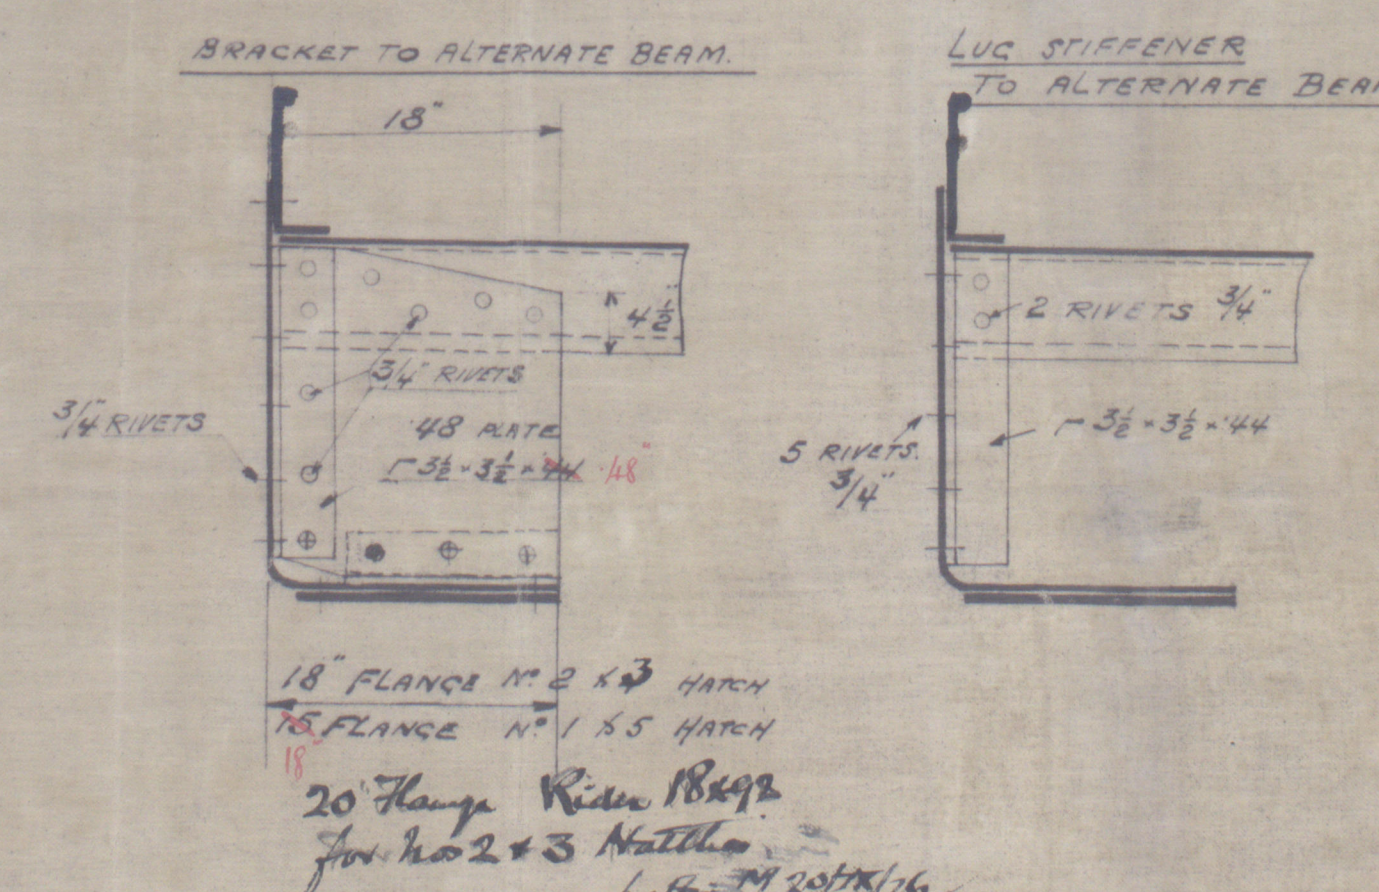 BRACKET TO ALTERNATE BEAM.
18"
4 1/2"
3/4" RIVETS
3/4" RIVETS
·48 PLATE
3 1/2 × 3 1/2 × ·44 ·48"
18" FLANGE No 2 & 3 HATCH
15 FLANGE No 1 & 5 HATCH
18"
20" Flange Rider 18
for Nos 2 & 3 Hatches
LUG STIFFENER
TO ALTERNATE
2 RIVETS 3/4"
3 1/2 × 3 1/2 × ·44
5 RIVETS.
3/4"